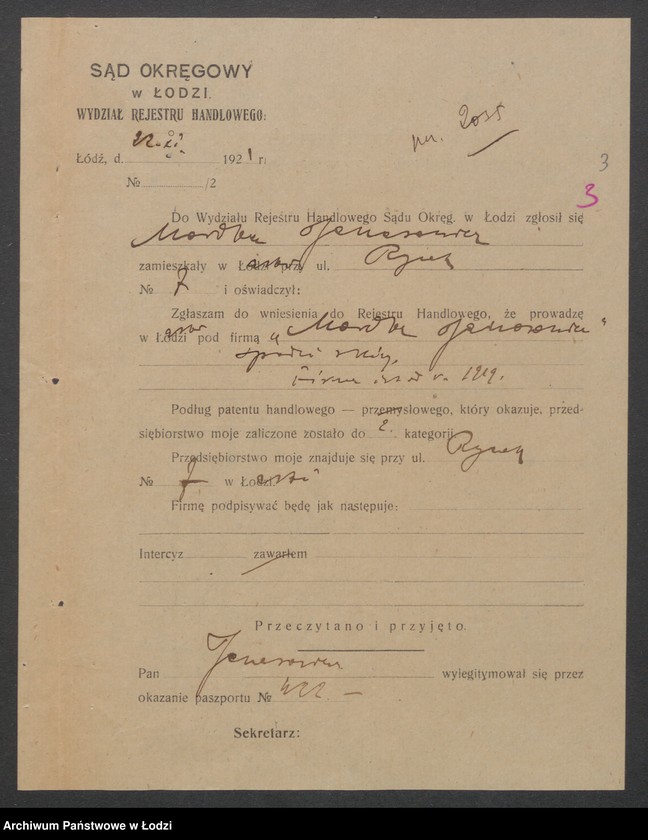 SĄD OKRĘGOWY
w ŁODZI.
WYDZIAŁ REJESTRU HANDLOWEGO:
Łódź, d. 22. XI 1921 r.
№ /2
3
3
Do Wydziału Rejestru Handlowego Sądu Okręg. w Łodzi zgłosił się
Mordka
zamieszkały w Łodzi przy ul. Rynek
№ 7 i oświadczył:
Zgłaszam do wniesienia do Rejestru Handlowego, że prowadzę
w Łodzi pod firmą „Mordka
1919.
Podług patentu handlowego — przemysłowego, który okazuje, przed-
siębiorstwo moje zaliczone zostało do 2 kategorji
Przedsiębiorstwo moje znajduje się przy ul. Rynek
№ 7 w Łodzi
Firmę podpisywać będę jak następuje:
Intercyz zawarłem
Przeczytano i przyjęto.
Pan wylegitymował się przez
okazanie paszportu № 422. —
Sekretarz:
Archiwum Państwowe w Łodzi